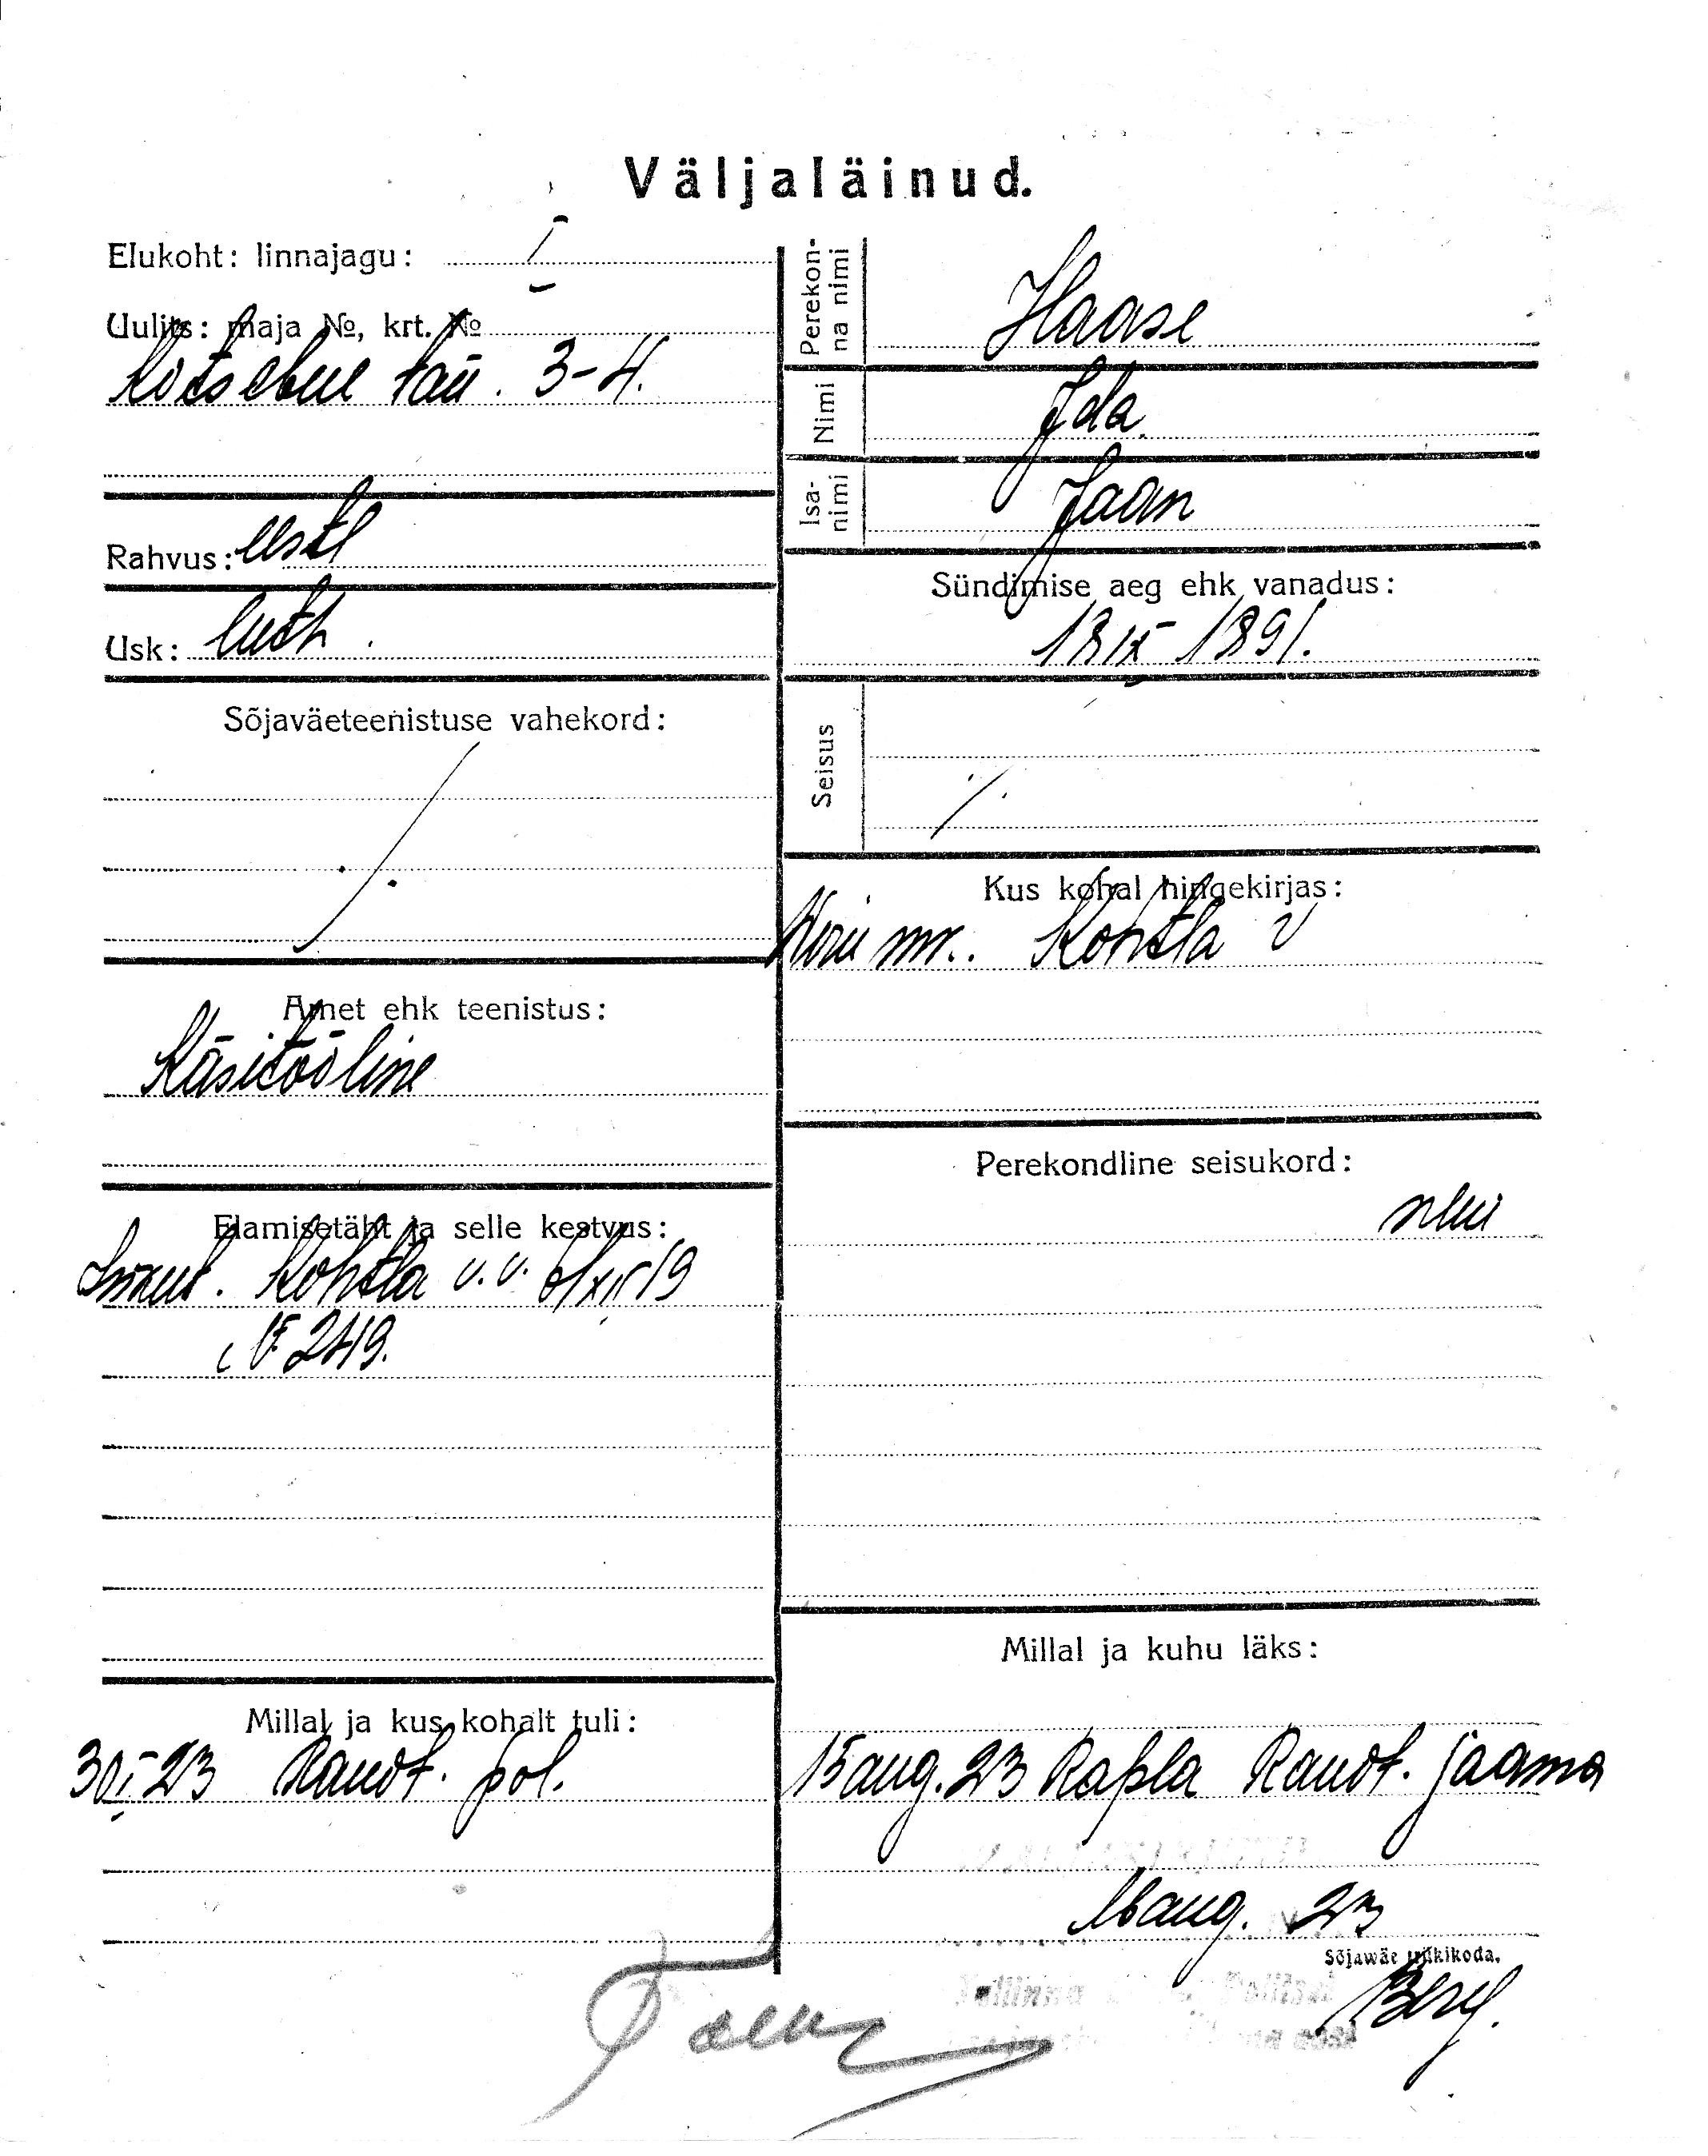 Väljaläinud.
Elukoht: linnajagu: I
Uulits: maja №, krt. №
Kotsebue tän. 3-4.
Rahvus: eestl
Usk: luth.
Sõjaväeteenistuse vahekord:
Amet ehk teenistus:
Käsitööline
Elamisetäht ja selle kestvus:
Kohtla v.v. XII 19
№ 249.
Millal ja kus kohalt tuli:
30 I 23 Raudt. pol.
Perekonna nimi
Haase
Nimi
Ida
Isanimi
Jaan
Sündimise aeg ehk vanadus:
18 IX 1891.
Seisus
Kus kohal hingekirjas:
Viru mk. Kohtla v
Perekondline seisukord:
Millal ja kuhu läks:
15 aug. 23 Rapla Raudt. jaama
16 aug. 23
Sõjawäe trükikoda.
Berg.